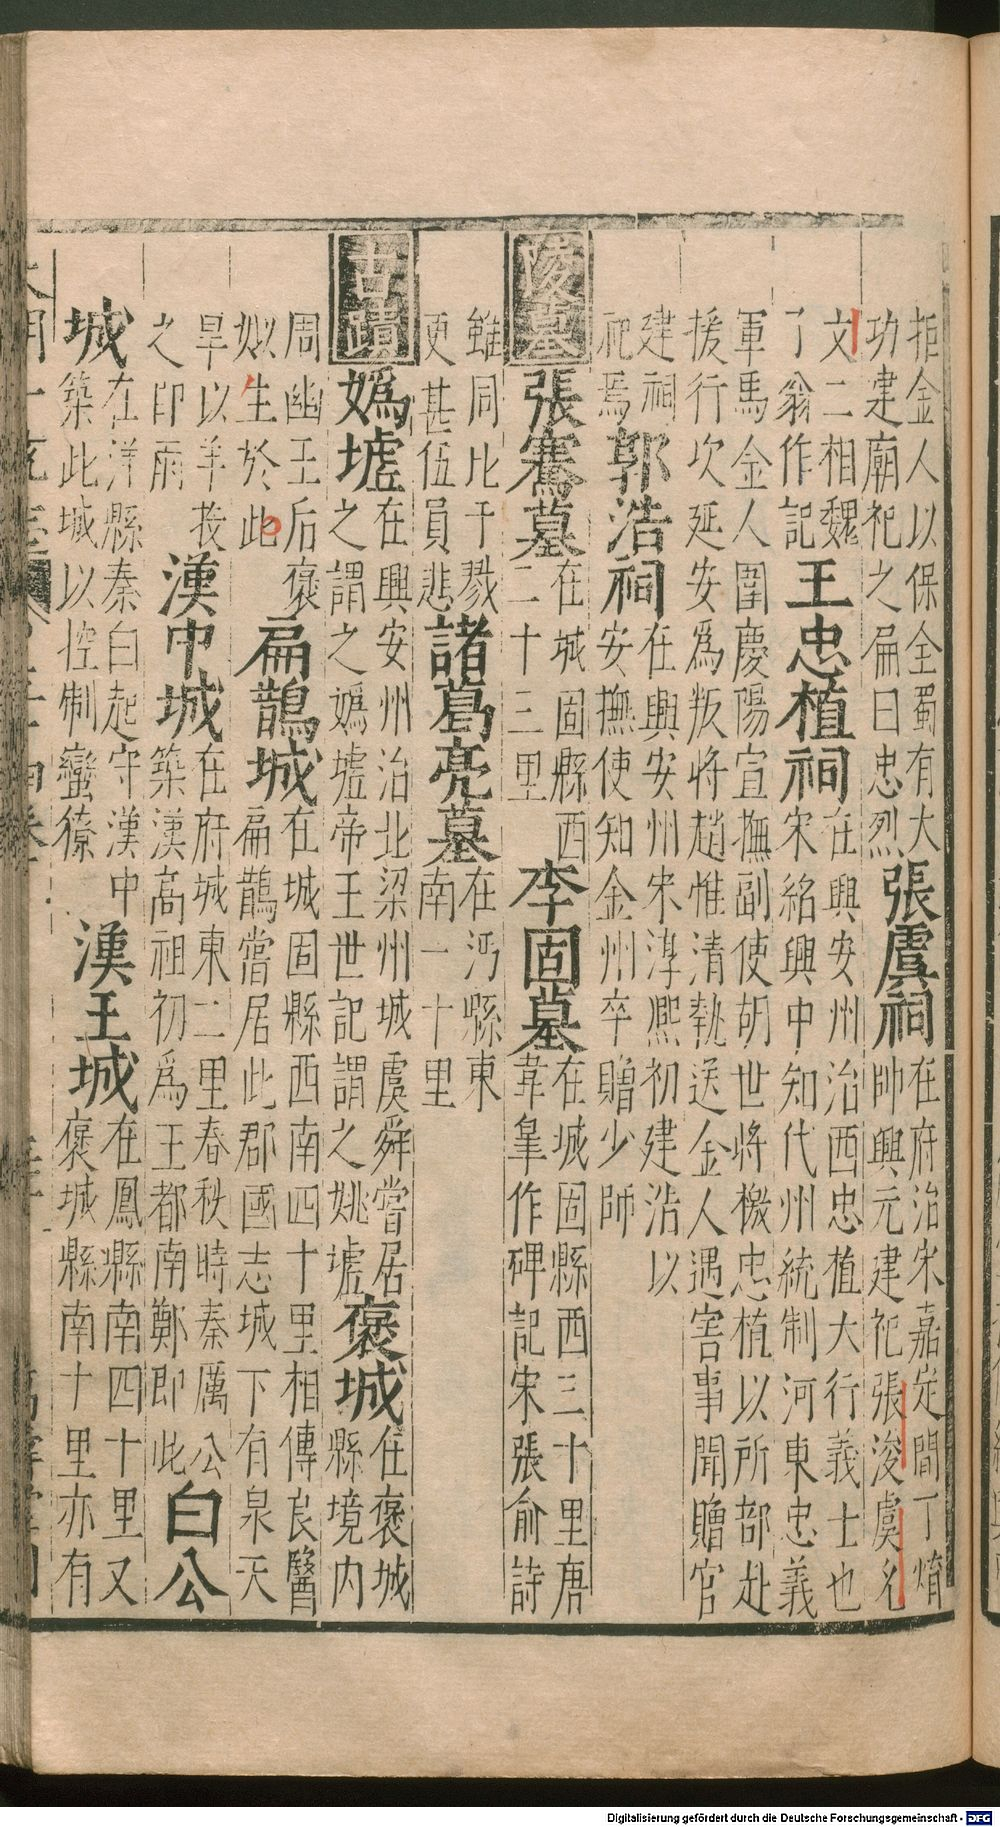 拒金人以保全蜀有大
功建廟祀之扁曰忠烈
張虞祠
在府治宋嘉定間丁焴
帥興元建祀張浚虞允
文二相魏
了翁作記
王忠植祠
在興安州治西忠植大行義士也
宋紹興中知代州統制河東忠義
軍馬金人圍慶陽宣撫副使胡世將檄忠植以所部赴
援行次延安為叛將趙惟清執送金人遇害事聞贈官
建祠
祀焉
郭浩祠
在興安州宋淳熈初建浩以
安撫使知金州卒贈少師
陵墓
張騫墓
在城固縣西
二十三里
李固墓
在城固縣西三十里唐
韋臯作碑記宋張俞詩
雖同比干戮
更甚伍員悲
諸葛亮墓
在沔縣東
南一十里
古蹟
媯墟
在興安州治北梁州城虞舜嘗居
之謂之媯墟帝王世記謂之姚墟
褒城
在褒城
縣境內
周幽王后褒
姒生於此
扁鵲城
在城固縣西南四十里相傳良醫
扁鵲嘗居此郡國志城下有泉天
旱以羊投
之即雨
漢中城
在府城東二里春秋時秦厲公
築漢高祖初為王都南鄭即此
白公
城
在洋縣秦白起守漢中
築此城以控制蠻獠
漢王城
在鳳縣南四十里又
褒城縣南十里亦有
Digitalisierung gefördert durch die Deutsche Forschungsgemeinschaft - DFG